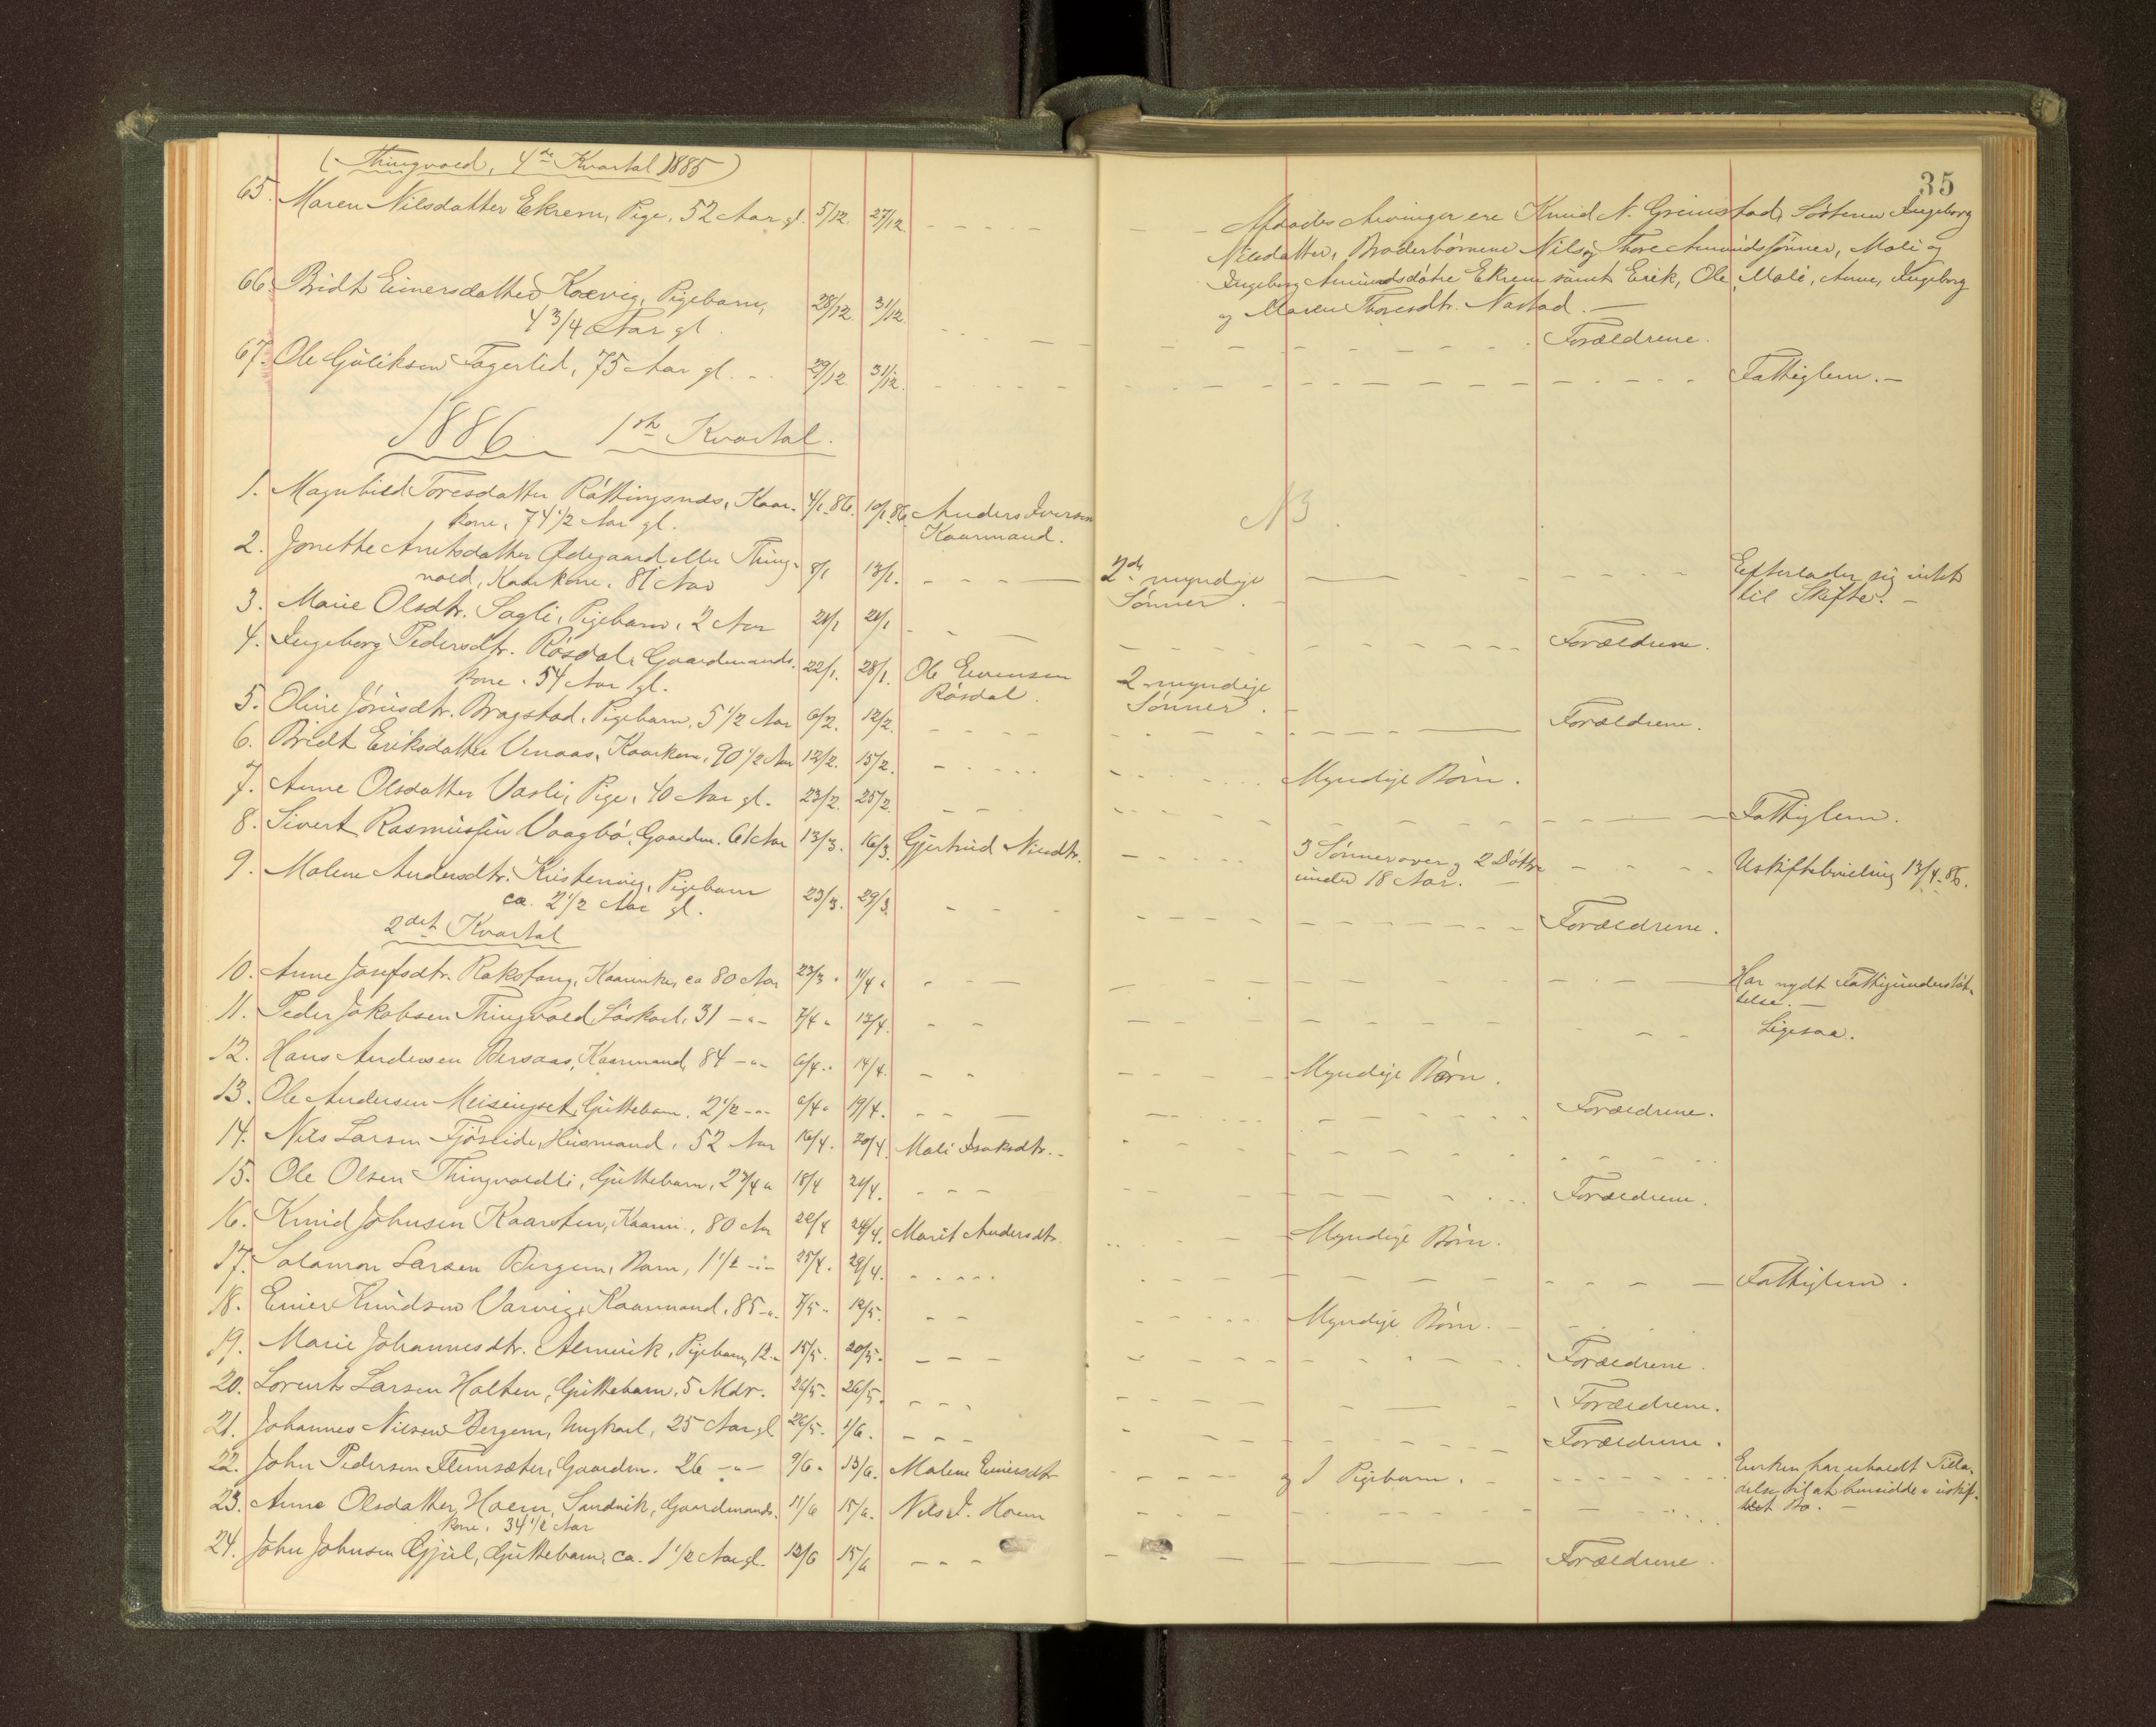 35
(Thingvold, 4de Kvartal 1885)
65. Maren Nilsdatter Ekrem, Pige, 52 Aar gl. 5/12. 27/12. Afdødes Arvinger ere Knud N. Grimstad, Søsteren Ingeborg
Nilsdatter, Broderbørnene Nils og Thore Amundssønner, Mali og
Ingeborg Amundsdøtre Ekrem samt Erik, Ole, Mali, Anne, Ingeborg
og Maren Thoresdtr. Nastad.
66. Bridt Einersdatter Koxvig, Pigebarn, 28/12 31/12.
4 3/4 Aar gl. Forældrene.
67. Ole Guliksen Fagerlid, 75 Aar gl. 29/12 31/12. Fattiglem.
1886. 1ste Kvartal.
1. Magnhild Toresdatter Røttingsnes, Kaar- 4/1 86. 10/1 86 Anders Iversen NB.
kone, 74 1/2 Aar gl. Kaarmand.
2. Jonette Arntsdatter Ødegaard eller Thing- 8/1 13/1. 2de myndige Efterlader sig intet
vold, Kaarkone, 81 Aar Sønner. til Skifte.
3. Marie Olsdtr. Sagli, Pigebarn, 2 Aar 21/1 21/1 Forældrene.
4. Ingeborg Pedersdtr. Røsdal, Gaardmands- 22/1. 28/1. Ole Evensen 2 myndige
kone. 54 Aar gl. Røsdal. Sønner.
5. Oline Jónsdtr. Bragstad, Pigebarn, 5 1/2 Aar 6/2. 12/2. Forældrene.
6. Bridt Eriksdatter Venaas, Kaarkone, 90 1/2 Aar 12/2. 15/2. Myndige Børn.
7. Anne Olsdatter Vasli, Pige, 40 Aar gl. 23/2. 25/2. Fattiglem.
8. Sivert Rasmussen Vaagbø, Gaardm. 61 Aar 13/3. 16/3. Gjertrud Nilsdtr. 3 Sønner over og 2 Døttre Uskiftebevilling 13/4 86.
under 18 Aar.
9. Malene Andersdtr. Kristenvig, Pigebarn 23/3. 29/3.
ca. 2 1/2 Aar gl. Forældrene.
2det Kvartal
10. Anne Josefsdtr. Rakstang, Kaarenke, ca 80 Aar 23/3. 11/4 Har nydt Fattigunderstøt-
telse.
11. Peder Jakobsen Thingvold, Løskarl, 31 -"- 7/4 13/4. Ligesaa.
12. Hans Andersen Bersaas, Kaarmand, 84 -"- 6/4 14/4. Myndige Børn.
13. Ole Andersen Meisingset, Guttebarn. 2 1/2 -"- 6/4 19/4. Forældrene.
14. Nils Larsen Fjøseide, Husmand, 52 Aar 16/4. 20/4. Mali Isaksdtr.
15. Ole Olsen Thingvoldli, Guttebarn, 2 3/4 " 18/4 21/4. Forældrene.
16. Knud Johnsen Kaarsten, Kaarm., 80 Aar 22/4 24/4. Marit Andersdtr. Myndige Børn.
17. Salamon Larsen Bergem, Barn, 1 1/2 -"- 25/4. 29/4. Fattiglem.
18. Einer Knudsen Varvig, Kaarmand, 85 -"- 7/5 12/5. Myndige Børn.
19. Marie Johannesdtr. Almvik, Pigebarn, 12 " 15/5. 20/5. Forældrene.
20. Lorents Larsen Holten, Guttebarn, 5 Mdr. 26/5. 26/5. Forældrene.
21. Johannes Nilsen Bergem, Ungkarl, 25 Aar gl 26/5. 1/6. Forældrene.
22. John Pedersen Flemsæter, Gaardm. 26 -"- 9/6. 13/6. Malene Einersdtr og 1 Pigebarn. Enken har erholdt Tilla-
delse til at hensidde i uskif-
tet Bo.
23. Anne Olsdatter Hoem, Sandvik, Gaardmands- 11/6 15/6. Nils J. Hoem
kone, 34 1/2 Aar
24. John Johnsen Gjul, Guttebarn, ca. 1 1/2 Aar gl. 12/6 15/6 Forældrene.